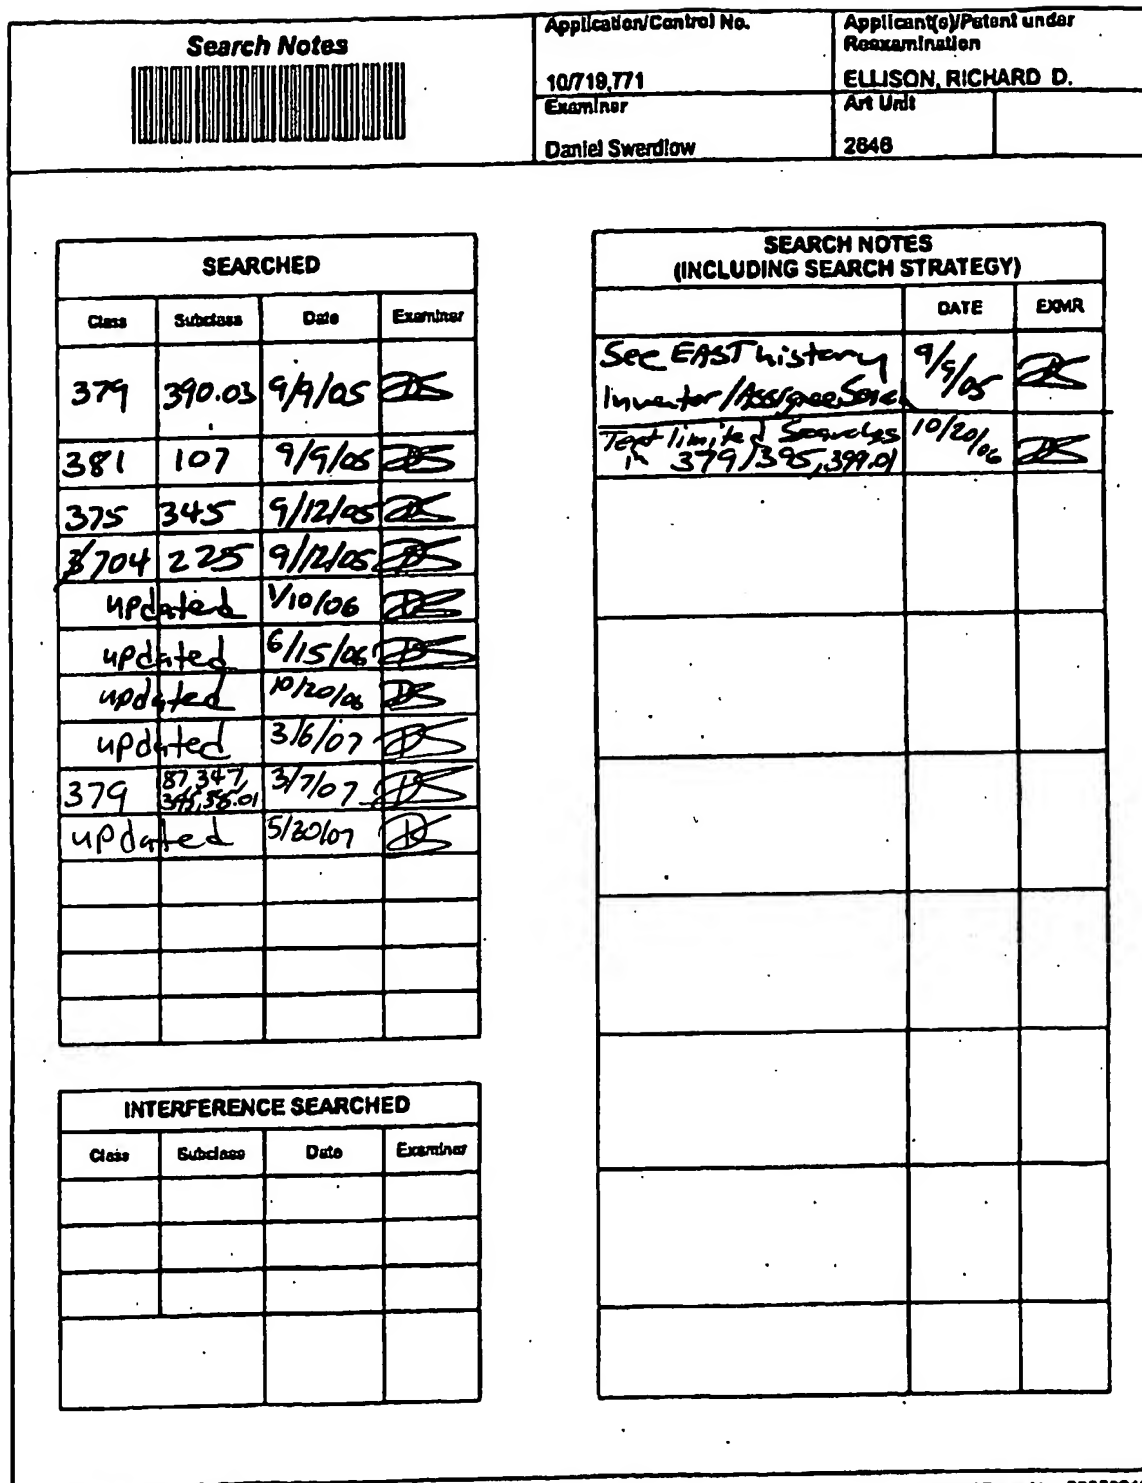 Search Notes
Application/Control No.
Applicant(s)/Patent under
Reexamination
10/719,771
ELLISON, RICHARD D.
Examiner
Art Unit
Daniel Swerdlow
2646
SEARCHED
Class Subclass Date Examiner
379 390.03 9/9/05 DS
381 107 9/9/05 DS
375 345 9/12/05 DS
704 225 9/12/05 DS
updated 1/10/06 DS
updated 6/15/06 DS
updated 10/20/06 DS
updated 3/6/07 DS
379 87, 347, 3/7/07 DS
updated 5/20/07 DS
INTERFERENCE SEARCHED
Class Subclass Date Examiner
SEARCH NOTES
(INCLUDING SEARCH STRATEGY)
DATE EXMR
See EAST history 9/9/05 DS
Inventor/Assignee Search
Text limited Searches 10/20/06 DS
in 379/395,399.01